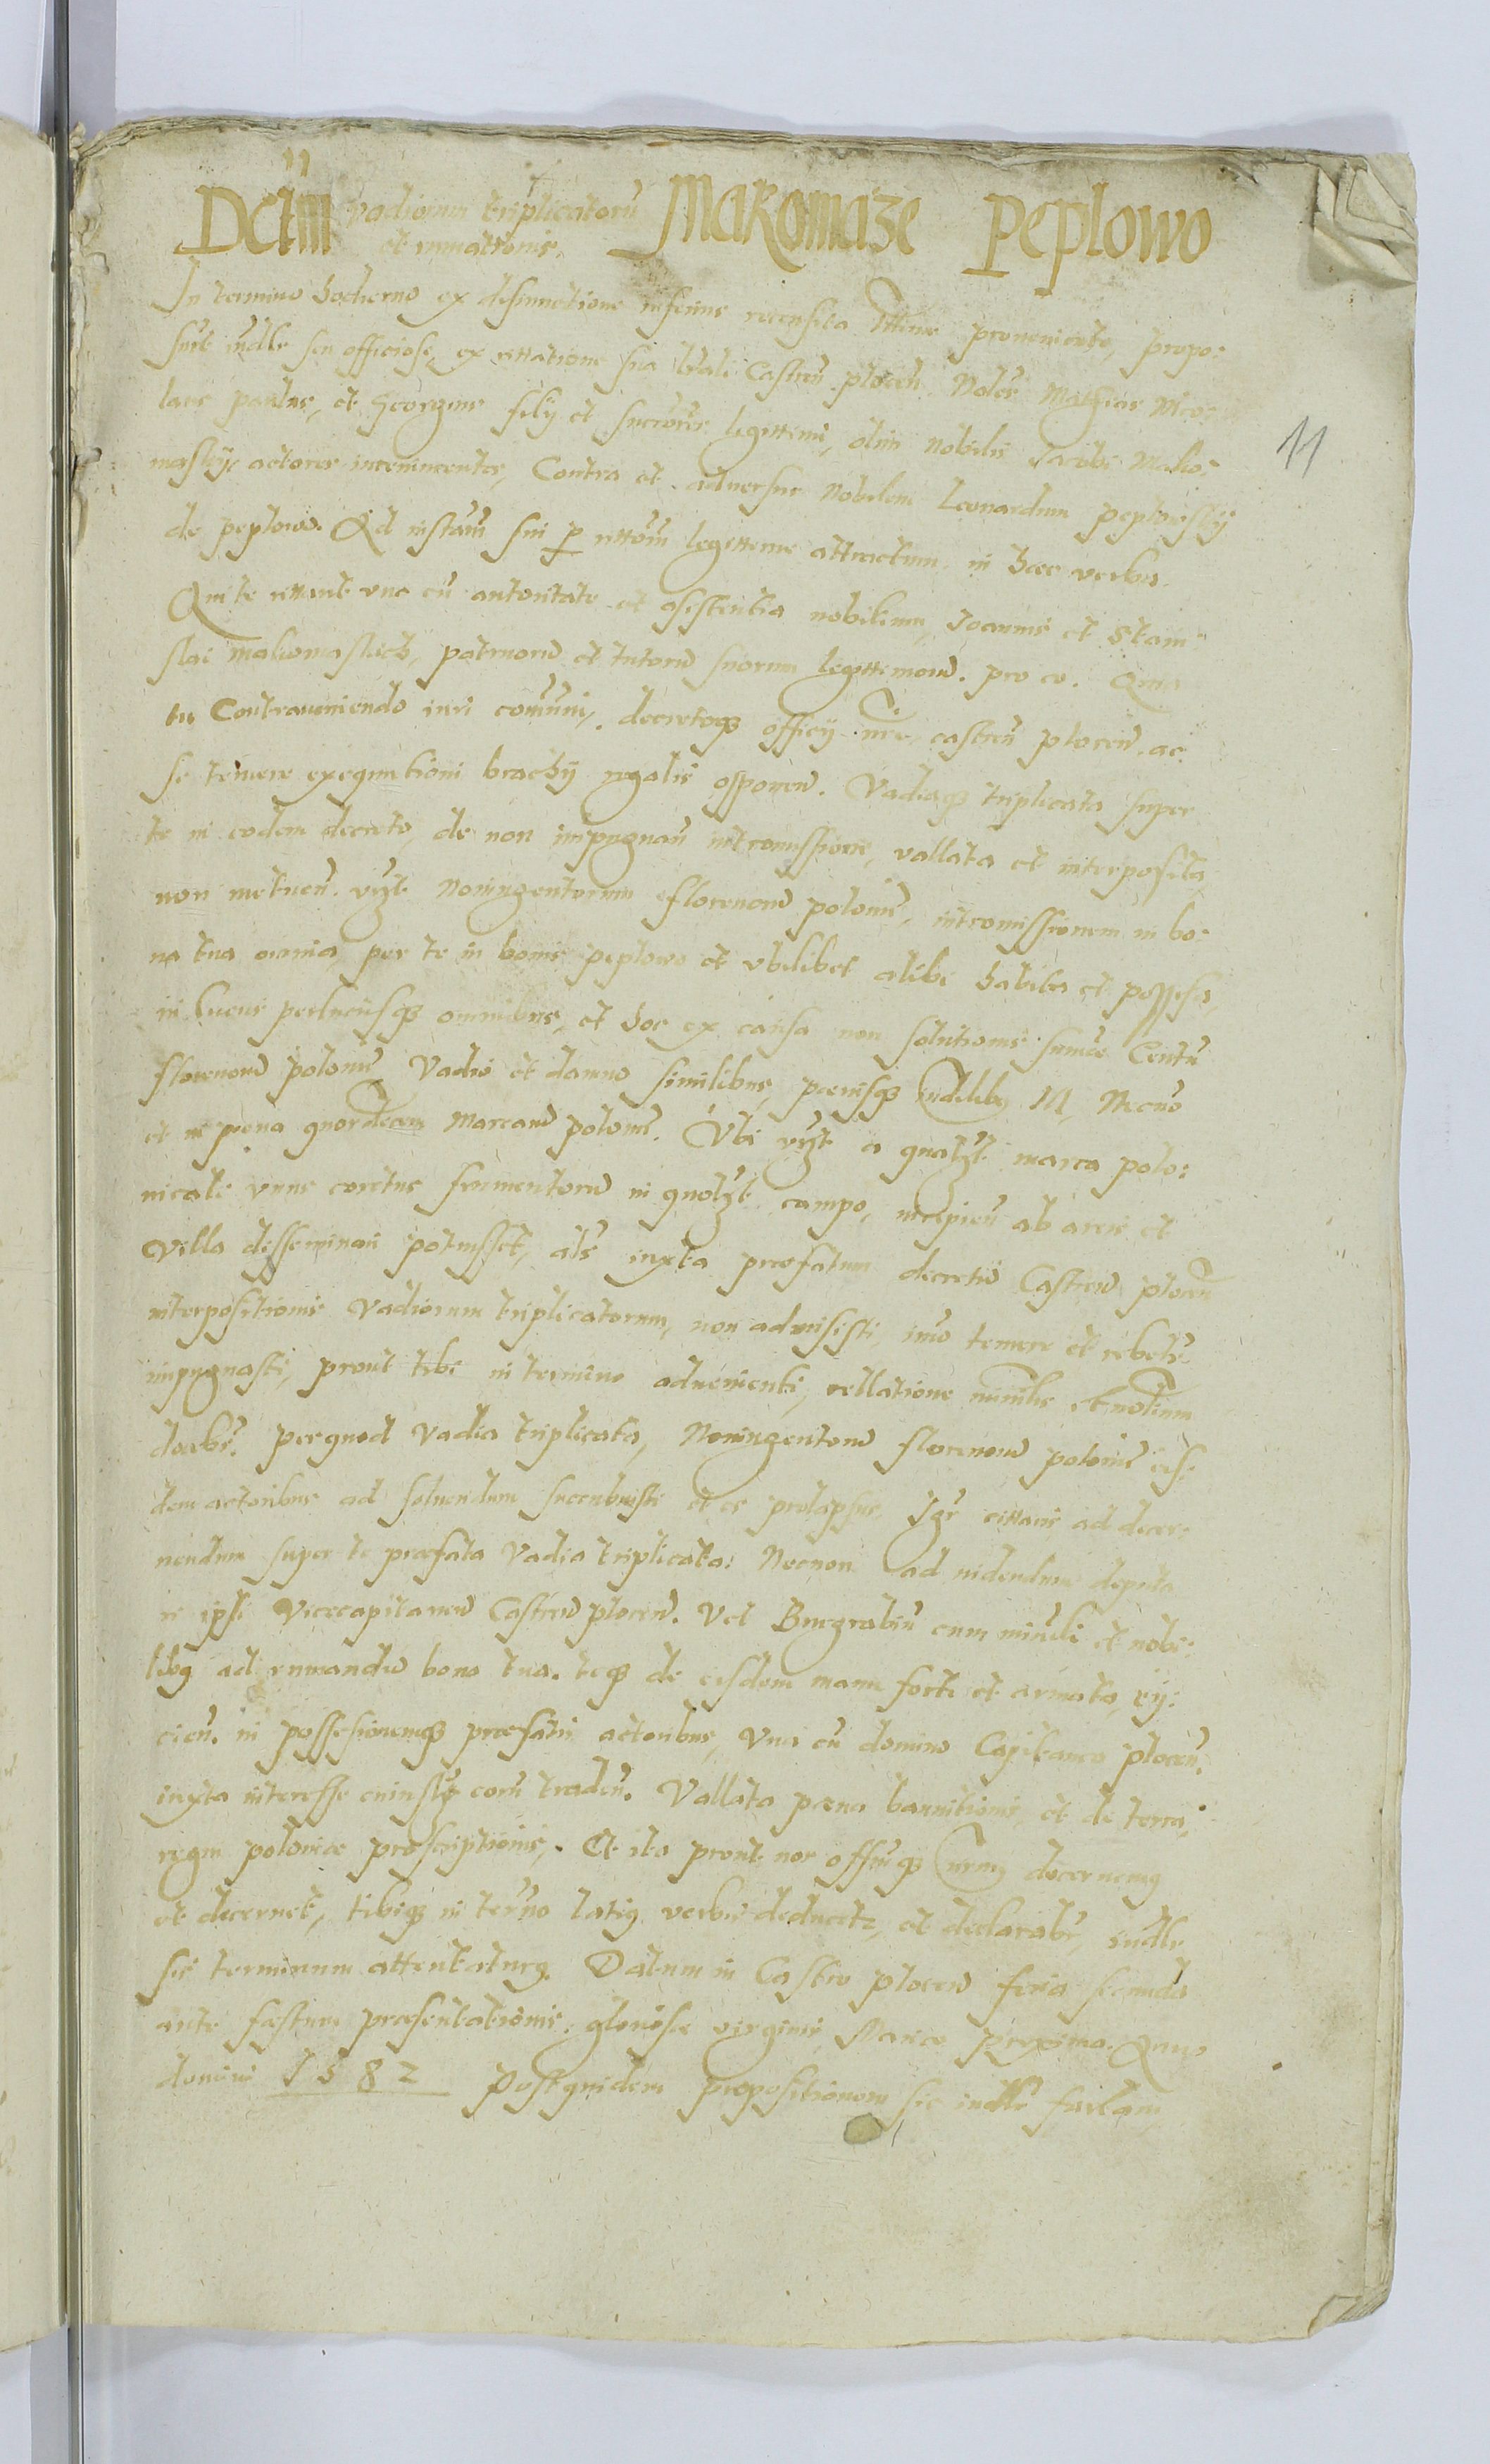 Dctm vadiorum triplicatorū Makomaze Peplowo
et inmationis.
In termino hodierno ex disiunctione inferius recensita ttime proveniente, propo:
suit iudlr seu officiose, ex cittatione sua lrali Castren. plocen. Nobles Mathias Nico:
laus paulus, et Georgius filij et succores legittimi, olim Nobilis Jacobi Mako:
maskij, actores invenientes, Contra et adversus Nobilem Leonardum peplowskij
de peplowo. Ad instam sui p cittom legitteme attractum in haec verba.
Qui te cittant una cū autoritate et assistentia nobilium, Joannis et Stani
slai makomaskich, patruorū et tutorū suorum legittimorū. pro eo. Quia
tu Contraveniendo iuri comūni, decretoq officij nri castren plocen. ac
se temere exequutioni brachij regalis opponen. Vadiaq triplicata super
te in eodem decreto, de non impugnan intromissione, vallata et interposita,
non metuen. vzt Noningentorum florenorū polonis. intromissionem in bo:
na tua omnia, per te in bonis peplowo et ubilibet alibi habita et possessa,
in lucris perlucrisq omnibus, et hoc ex causa non solutionis sumae Centū
florenorū polonis Vadio et damno similibus, poenisq iudlibs 14, Necno
et in poena quordecem Marcarū polonis. Ubi vzt a qualzt marca polo:
nicali unus coretus frumentorū in quolzt campo, incipien ab arcis et
Villa disseminari potuisset, als iuxta praefatum decretū Castren plocen
interpositionis Vadiorum triplicatorum, non admisisti imo temere et rebelr
inpugnasti, prout tibi in termino advenienti, rellatione minilis et nobilium
docebr. perquod Vadia triplicata, Noningentorū florenorū polonis eis:
dem actoribus ad solvendum succubuisti et es prolapsus. Igr cittaris ad decer:
nendum super te praefata Vadia triplicata: Necnon ad videndum deputa
ri ipsi Vicecapitaneū Castren plocen. Vel Burgrabiū cum minili et nobi:
libs ad inmandū bona tua. teq de eisdem manu forti et armata, eij:
cien. in possesionemq praefatis actoribus, Una cū domino Capitaneo plocen.
iuxta interesse cuiuslzt eorū traden. Vallata poena bannitionis et de terra
regni poloniae proscriptionis. Et ita prout nos offmq nrm decernemus
et decernet, tibiq in termo latius verbis deducetr, et declarabr, iudlr
sis terminum attentaturus. Datum in Castro plocen feria secunda
ante festum praesentationis, gloriosae virginis Mariae proxima. Anno
domini 1582 Postquidem propositionem sic iudlr factam,
11